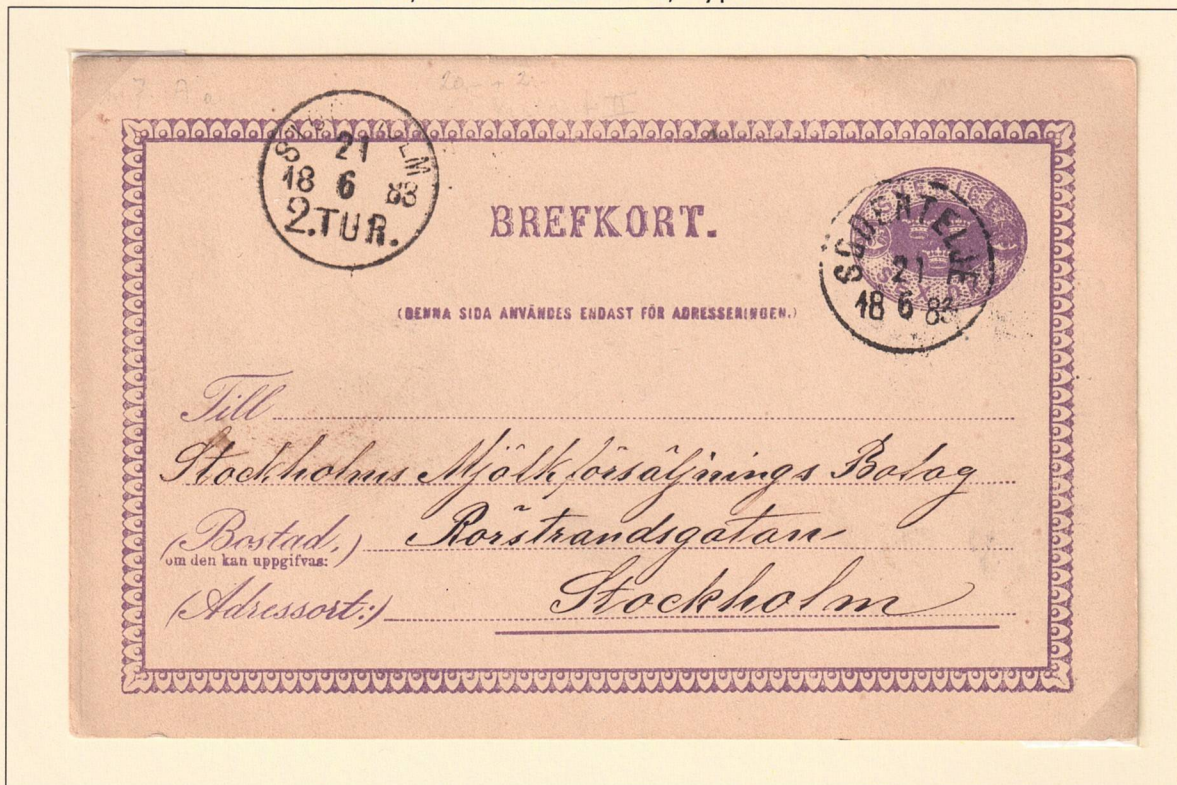 21
18 6 83
2.TUR.
BREFKORT.
SÖDERTELJE
21
18 6 83
(DENNA SIDA ANVÄNDES ENDAST FÖR ADRESSERINGEN.)
Till
Stockholms Mjölkförsäljnings Bolag
(Bostad,) Rörstrandsgatan
om den kan uppgifvas:
(Adressort:) Stockholm